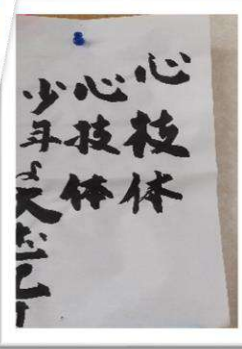 心技体
心技体
少年よ大志を